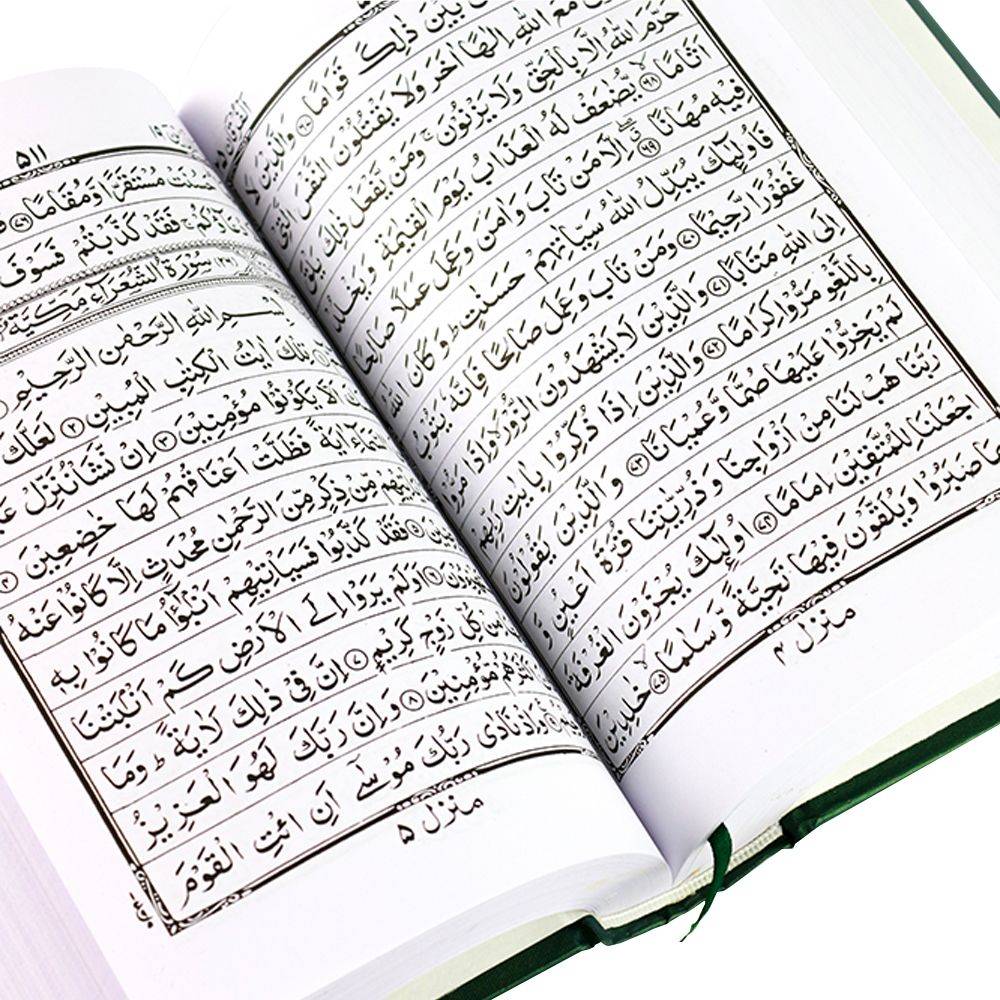 بَيْنَ ذٰلِكَ قَوَامًا ﴿۶۷﴾ وَالَّذِيْنَ
مَعَ اللّٰهِ اِلٰهًا اٰخَرَ وَلَا يَقْتُلُوْنَ النَّفْسَ الَّتِيْ
حَرَّمَ اللّٰهُ اِلَّا بِالْحَقِّ وَلَا يَزْنُوْنَ ۚ وَمَنْ يَّفْعَلْ ذٰلِكَ يَلْقَ
اَثَامًا ﴿۶۸﴾ يُّضٰعَفْ لَهُ الْعَذَابُ يَوْمَ الْقِيٰمَةِ وَيَخْلُدْ
فِيْهٖ مُهَانًا ﴿۶۹﴾ اِلَّا مَنْ تَابَ وَاٰمَنَ وَعَمِلَ عَمَلًا صَالِحًا
فَاُولٰٓئِكَ يُبَدِّلُ اللّٰهُ سَيِّاٰتِهِمْ حَسَنٰتٍ ؕ وَكَانَ اللّٰهُ
غَفُوْرًا رَّحِيْمًا ﴿۷۰﴾ وَمَنْ تَابَ وَعَمِلَ صَالِحًا فَاِنَّهٗ يَتُوْبُ
اِلَى اللّٰهِ مَتَابًا ﴿۷۱﴾ وَالَّذِيْنَ لَا يَشْهَدُوْنَ الزُّوْرَ ۙ وَاِذَا مَرُّوْا
بِاللَّغْوِ مَرُّوْا كِرَامًا ﴿۷۲﴾ وَالَّذِيْنَ اِذَا ذُكِّرُوْا بِاٰيٰتِ رَبِّهِمْ
لَمْ يَخِرُّوْا عَلَيْهَا صُمًّا وَّعُمْيَانًا ﴿۷۳﴾ وَالَّذِيْنَ يَقُوْلُوْنَ
رَبَّنَا هَبْ لَنَا مِنْ اَزْوَاجِنَا وَذُرِّيّٰتِنَا قُرَّةَ اَعْيُنٍ وَّ
جْعَلْنَا لِلْمُتَّقِيْنَ اِمَامًا ﴿۷۴﴾ اُولٰٓئِكَ يُجْزَوْنَ الْغُرْفَةَ
مَا صَبَرُوْا وَيُلَقَّوْنَ فِيْهَا تَحِيَّةً وَّسَلٰمًا ﴿۷۵﴾ خٰلِدِيْنَ
منزل ۴
۵۱۱
حَسُنَتْ مُسْتَقَرًّا وَّمُقَامًا ﴿۷۶﴾
فَقَدْ كَذَّبْتُمْ فَسَوْفَ
(۲۶) سُوْرَةُ الشُّعَرَآءِ مَكِّيَّةٌ
بِسْمِ اللّٰهِ الرَّحْمٰنِ الرَّحِيْمِ
تِلْكَ اٰيٰتُ الْكِتٰبِ الْمُبِيْنِ ﴿۲﴾ لَعَلَّكَ
اَلَّا يَكُوْنُوْا مُؤْمِنِيْنَ ﴿۳﴾ اِنْ نَّشَاْ نُنَزِّلْ
اٰيَةً فَظَلَّتْ اَعْنَاقُهُمْ لَهَا خٰضِعِيْنَ ﴿۴﴾
مِّنْ ذِكْرٍ مِّنَ الرَّحْمٰنِ مُحْدَثٍ اِلَّا كَانُوْا عَنْهُ
فَقَدْ كَذَّبُوْا فَسَيَاْتِيْهِمْ اَنْۢبٰٓؤُا مَا كَانُوْا بِهٖ
﴿۶﴾ اَوَلَمْ يَرَوْا اِلَى الْاَرْضِ كَمْ اَنْۢبَتْنَا
مِنْ كُلِّ زَوْجٍ كَرِيْمٍ ﴿۷﴾ اِنَّ فِيْ ذٰلِكَ لَاٰيَةً ؕ وَمَا
اَكْثَرُهُمْ مُّؤْمِنِيْنَ ﴿۸﴾ وَاِنَّ رَبَّكَ لَهُوَ الْعَزِيْزُ
وَاِذْ نَادٰى رَبُّكَ مُوْسٰٓى اَنِ ائْتِ الْقَوْمَ
منزل ۵